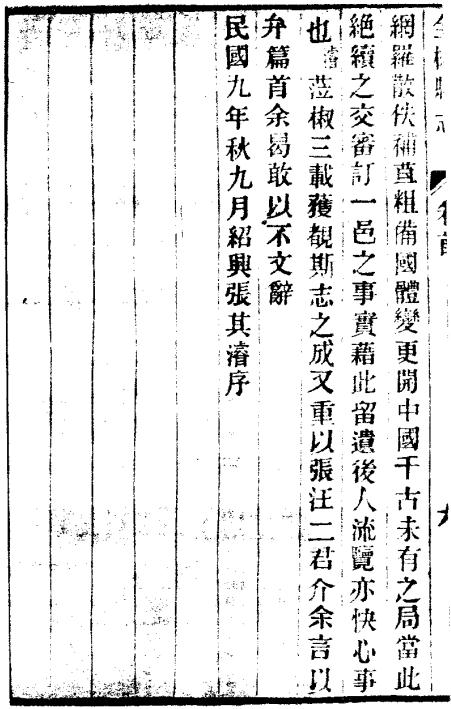 全椒縣志 卷首 九
網羅散佚補苴粗備國體變更開中國千古未有之局當此
絕續之交審訂一邑之事實藉此留遺後人流覽亦快心事
也濬蒞椒三載獲覩斯志之成又重以張汪二君介余言以
弁篇首余曷敢以不文辭
民國九年秋九月紹興張其濬序